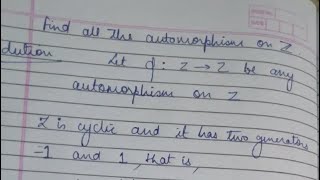 Find all the automorphisms on Z
lution Let ϕ : Z → Z be any
automorphism on Z
Z is cyclic and it has two generators
-1 and 1, that is,